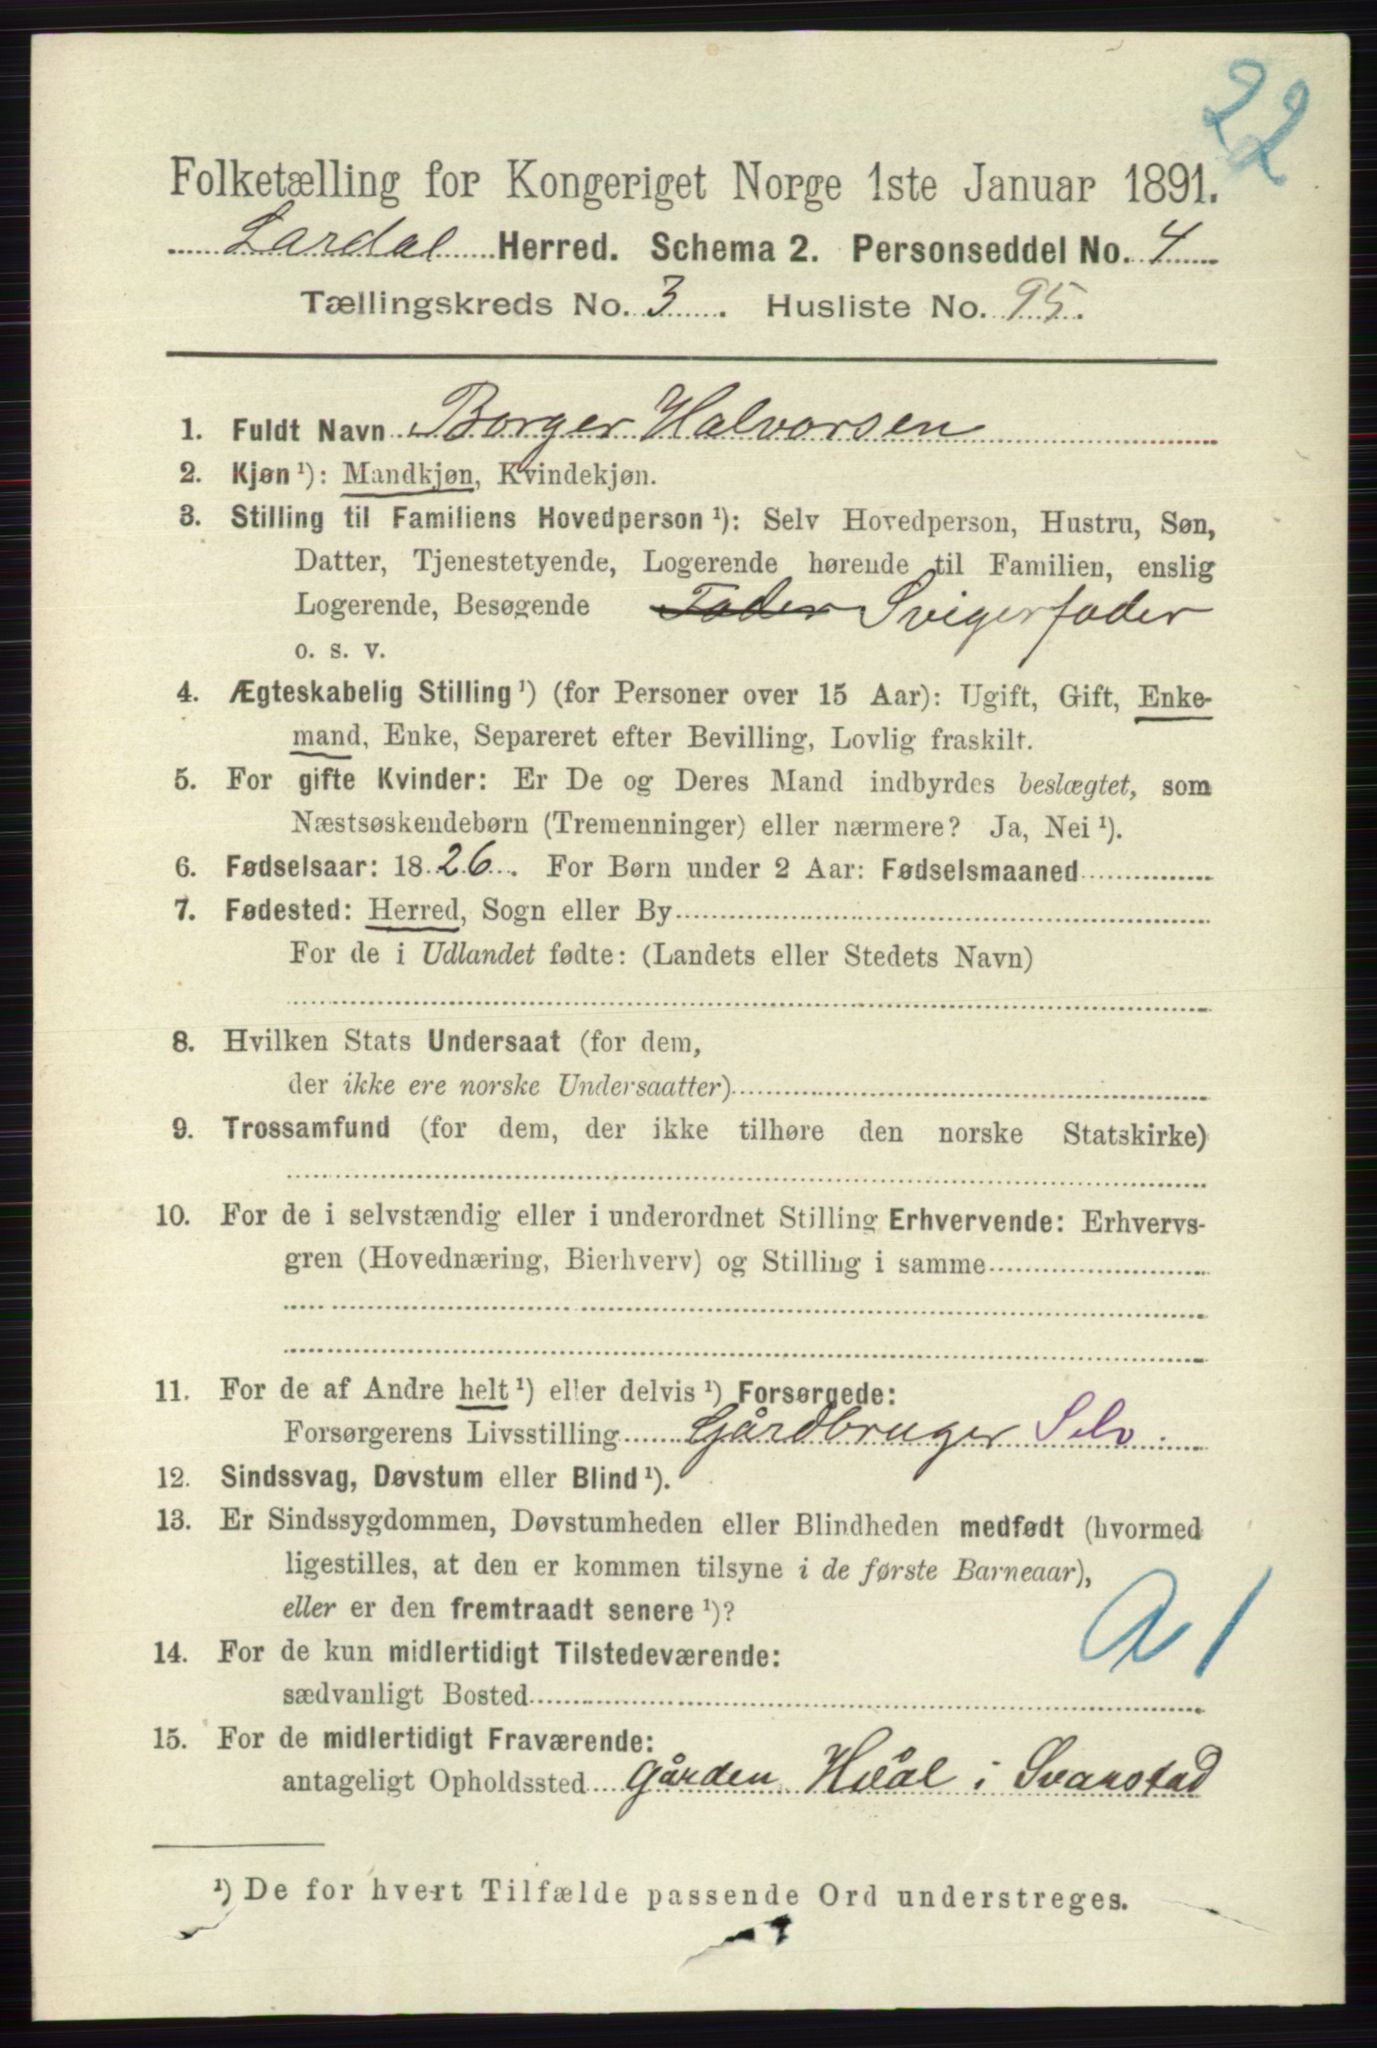 22
Folketælling for Kongeriget Norge 1ste Januar 1891.
Lardal Herred. Schema 2. Personseddel No. 4
Tællingskreds No. 3. Husliste No. 95.
1. Fuldt Navn Borger Halvorsen
2. Kjøn ¹): Mandkjøn, Kvindekjøn.
3. Stilling til Familiens Hovedperson ¹): Selv Hovedperson, Hustru, Søn,
Datter, Tjenestetyende, Logerende hørende til Familien, enslig
Logerende, Besøgende Fader Svigerfader
o. s. v.
4. Ægteskabelig Stilling ¹) (for Personer over 15 Aar): Ugift, Gift, Enke-
mand, Enke, Separeret efter Bevilling, Lovlig fraskilt.
5. For gifte Kvinder: Er De og Deres Mand indbyrdes beslægtet, som
Næstsøskendebørn (Tremenninger) eller nærmere? Ja, Nei ¹).
6. Fødselsaar: 1826. For Børn under 2 Aar: Fødselsmaaned
7. Fødested: Herred, Sogn eller By
For de i Udlandet fødte: (Landets eller Stedets Navn)
8. Hvilken Stats Undersaat (for dem,
der ikke ere norske Undersaatter)
9. Trossamfund (for dem, der ikke tilhøre den norske Statskirke)
10. For de i selvstændig eller i underordnet Stilling Erhvervende: Erhvervs-
gren (Hovednæring, Bierhverv) og Stilling i samme
11. For de af Andre helt ¹) eller delvis ¹) Forsørgede:
Forsørgerens Livsstilling Gårdbruger Selv.
12. Sindssvag, Døvstum eller Blind ¹).
13. Er Sindssygdommen, Døvstumheden eller Blindheden medfødt (hvormed
ligestilles, at den er kommen tilsyne i de første Barneaar),
eller er den fremtraadt senere ¹)?
14. For de kun midlertidigt Tilstedeværende:
sædvanligt Bosted
15. For de midlertidigt Fraværende:
antageligt Opholdssted Gården Hvål i Svarstad
¹) De for hvert Tilfælde passende Ord understreges.